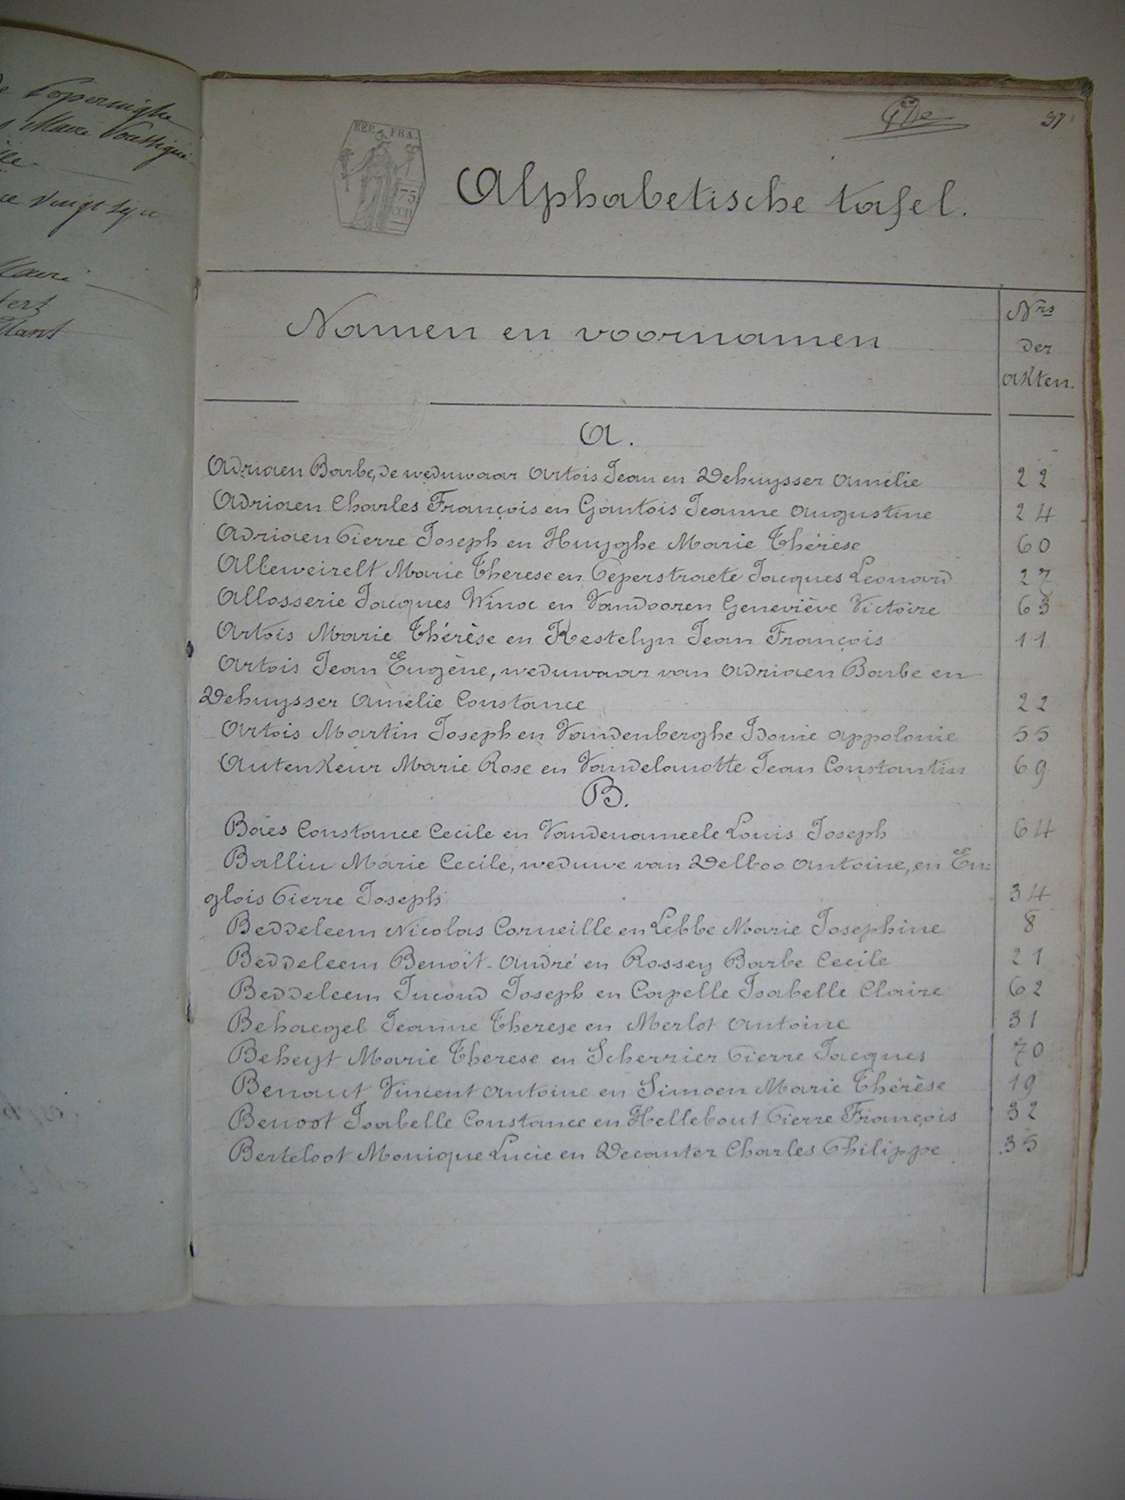 de Poperinghe
Maire
vingt sept
Maire
37
REP. FRA.
75
Alphabetische tafel.
Namen en voornamen
Nrs
der
akten.
A.
Adriaen Barbe, de weduwaar Artois Jean en Dehuysser Amélie 22
Adriaen Charles François en Gantois Jeanne Augustine 24
Adriaen Pierre Joseph en Huyghe Marie Thérèse 60
Alleweirelt Marie Therese en Péperstraete Jacques Leonard 27
Allosserie Jacques Winoc en Vandooren Geneviève Victoire 63
Artois Marie Thérèse en Kestelyn Jean François 11
Artois Jean Eugène, weduwaar van Adriaen Barbe en
Dehuysser Amélie Constance 22
Artois Martin Joseph en Vandenberghe Idonie Appolonie 55
Autenkeur Marie Rose en Vandelanotte Jean Constantin 69
B.
Baes Constance Cecile en Vandenameele Louis Joseph 64
Balliu Marie Cecile, weduwe van Delboo Antoine, en En-
glois Pierre Joseph 34
Beddeleem Nicolas Corneille en Lebbe Marie Josephine 8
Beddeleem Benoît-André en Rossey Barbe Cecile 21
Beddeleem Jucond Joseph en Capelle Isabelle Claire 62
Behaegel Jeanne Therese en Merlot Antoine 31
Beheyt Marie Therese en Scherrier Pierre Jacques 70
Benaut Vincent Antoine en Simoen Marie Thérèse 19
Benoot Isabelle Constance en Hellebout Pierre François 32
Berteloot Monique Lucie en Decanter Charles Philippe 35